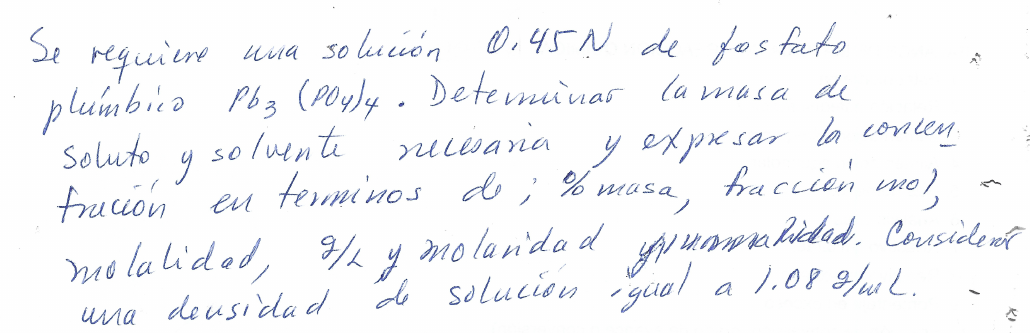 Se requiere una solución 0.45N de fosfato
plúmbico Pb3 (PO4)4. Determinar la masa de
soluto y solvente necesaria y expresar la concen
tración en terminos de; % masa, fracción mol,
molalidad, g/L y molaridad y normalidad. Considerar
una densidad de solución igual a 1.08 g/mL.